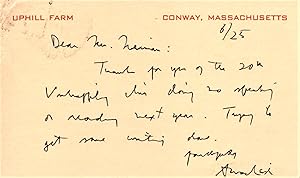 UPHILL FARM CONWAY, MASSACHUSETTS
6/25
Dear Mr.
Thank for yrs of the 20th
Unhappily this doing no speaking
or reading next year. Trying to
get some writing done.